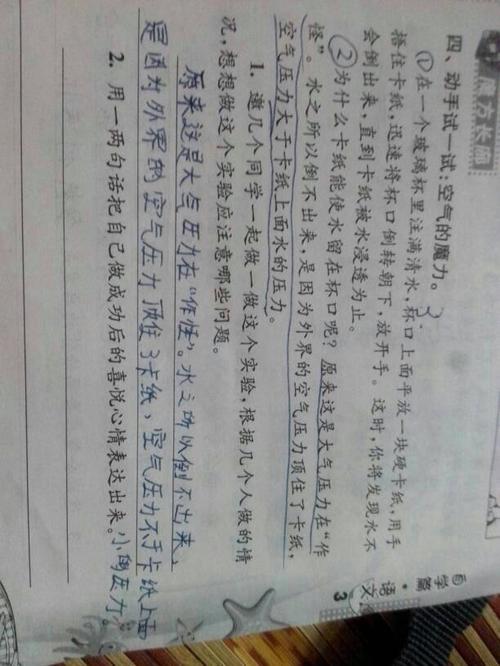 自学篇·语文
3
四、动手试一试:空气的魔力。
①在一个玻璃杯里注满清水,杯口上面平放一块硬卡纸,用手
捂住卡纸,迅速将杯口倒转朝下,放开手。这时,你将发现水不
会倒出来,直到卡纸被水浸透为止。
②为什么卡纸能使水留在杯口呢?原来这是大气压力在“作
怪”。水之所以倒不出来,是因为外界的空气压力顶住了卡纸,
空气压力大于卡纸上面水的压力。
1. 邀几个同学一起做一做这个实验,根据几个人做的情
况,想想做这个实验应注意哪些问题。
原来这是大气压力在“作怪”。水之所以倒不出来,
是因为外界的空气压力顶住了卡纸,空气压力大于卡纸上面
水的压力。
2. 用一两句话把自己做成功后的喜悦心情表达出来。